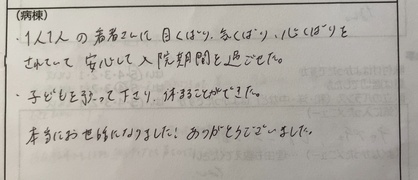 (病棟)
・1人1人の患者さんに目くばり、気くばり、心くばりを
されていて安心して入院期間を過ごせた。
・子どもを預って下さり、休まることができた。
本当にお世話になりました！ありがとうございました。